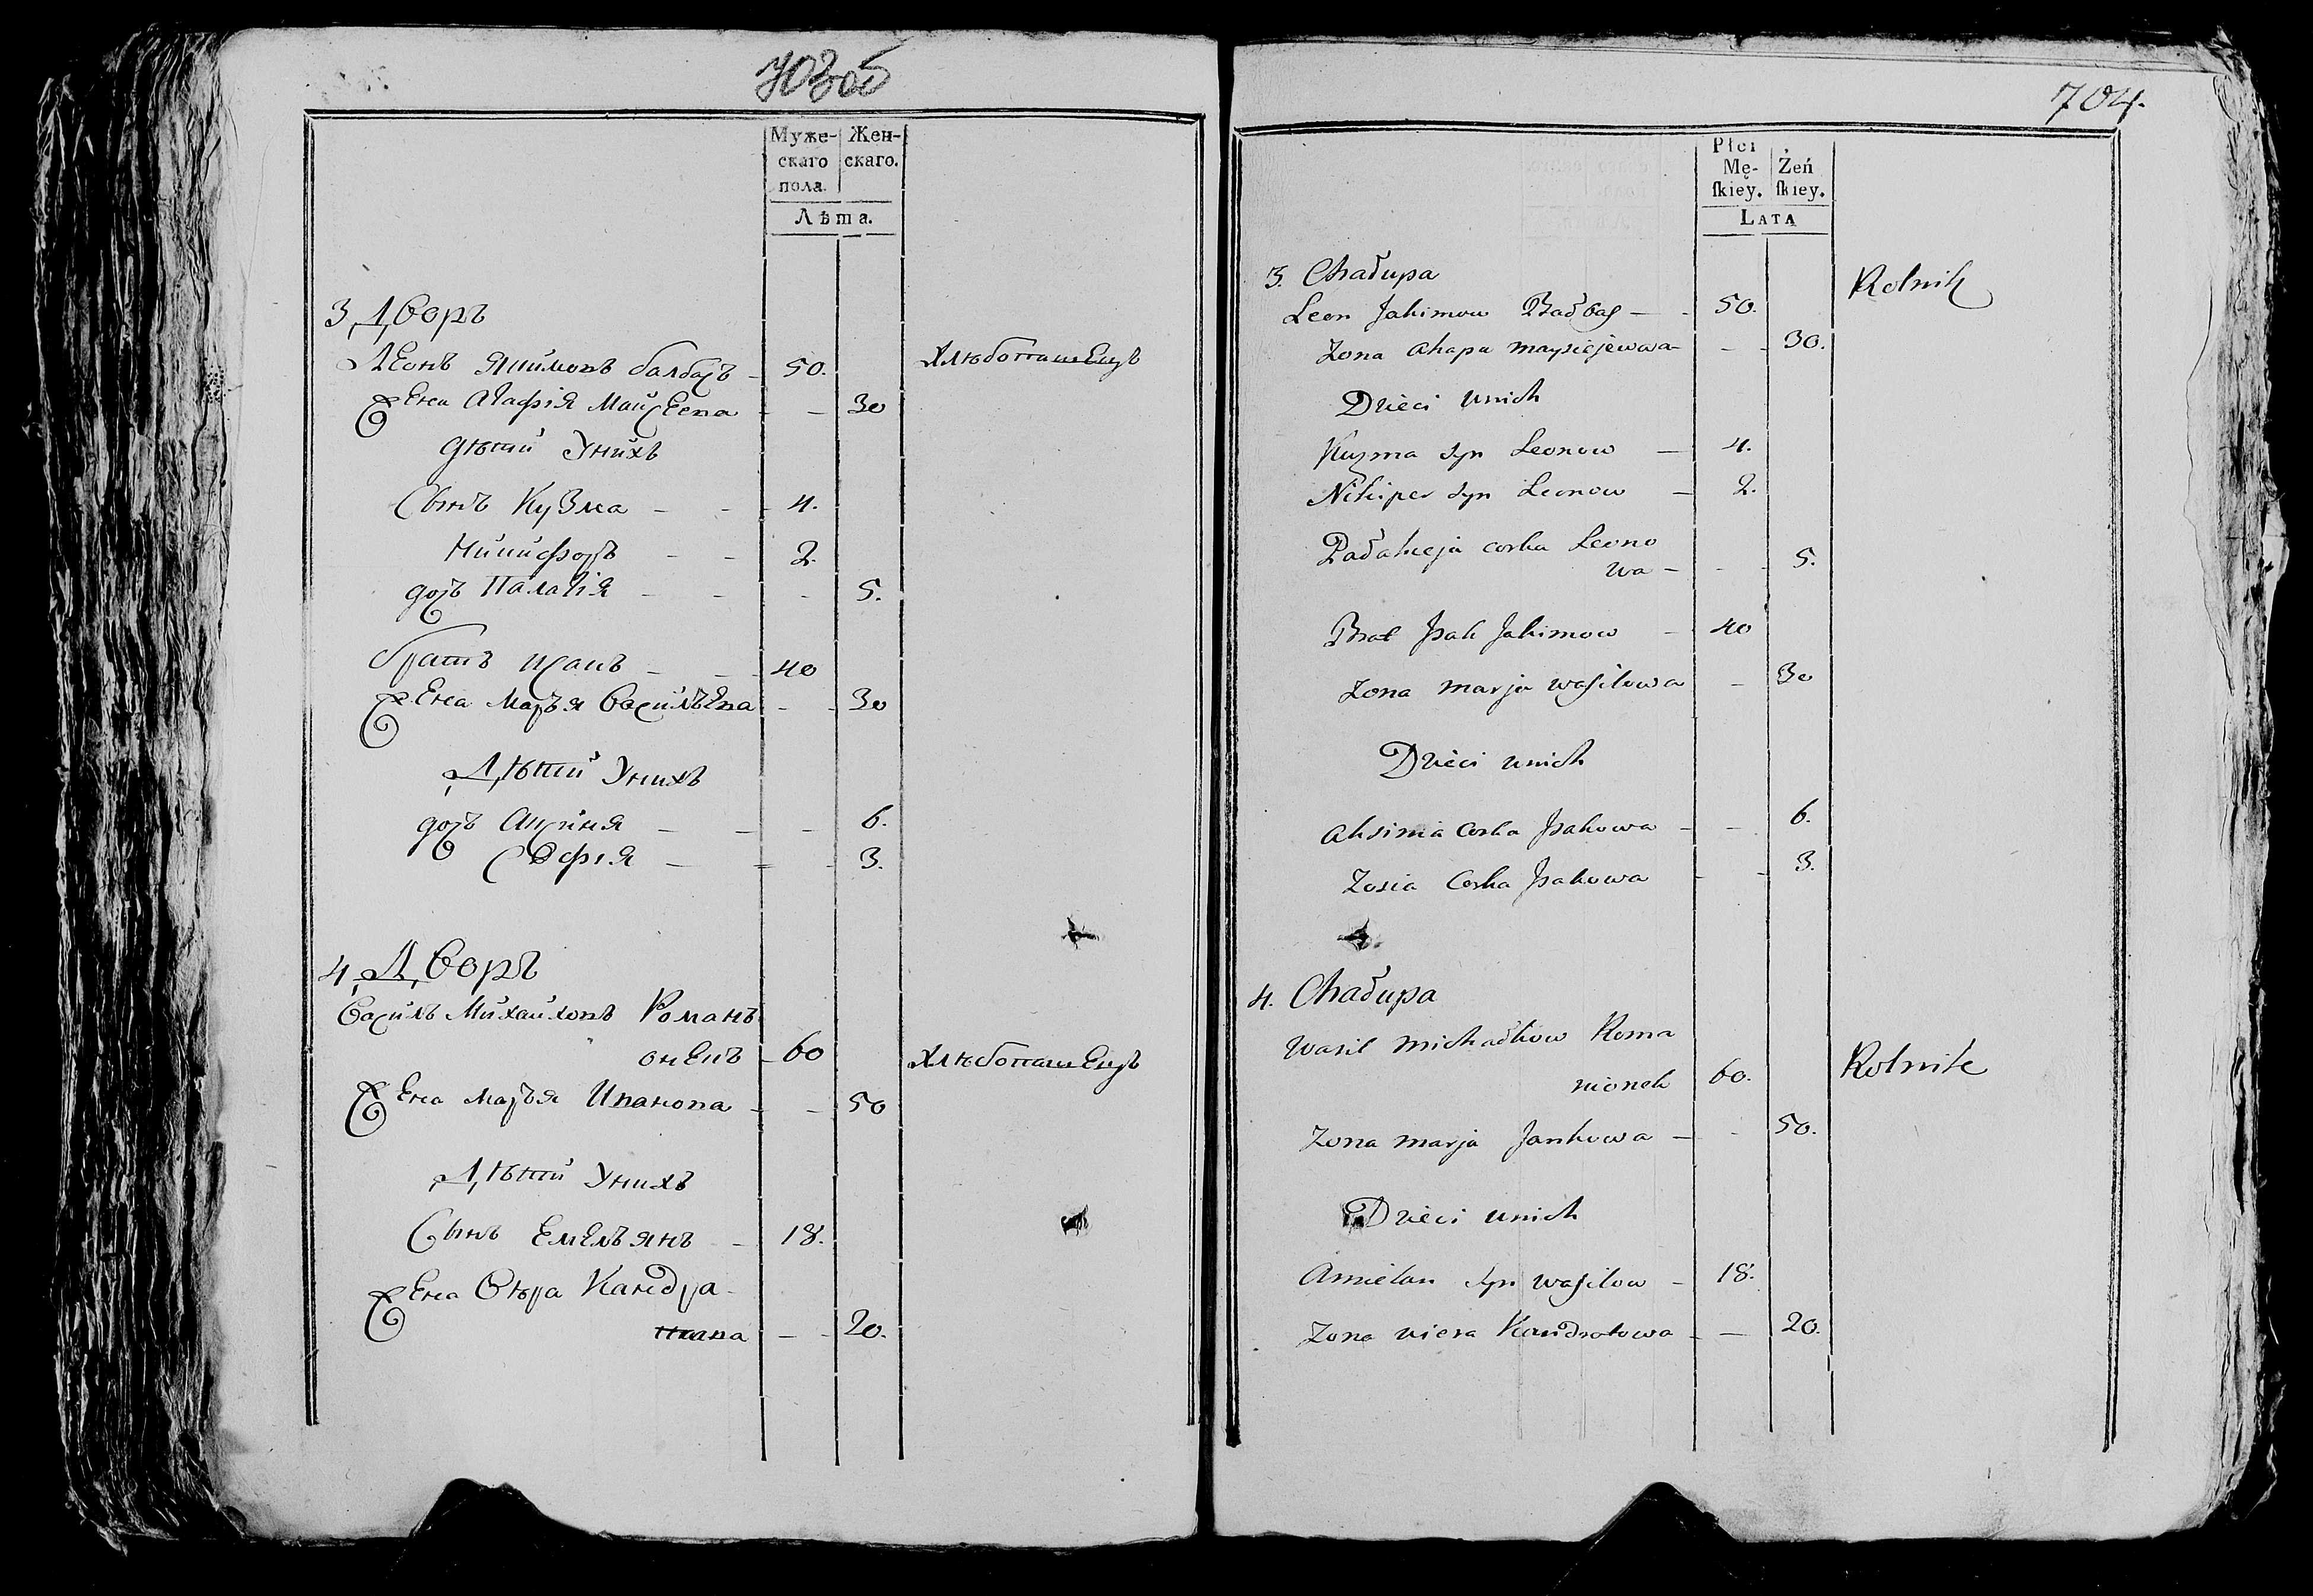 703об
Муже- Жен-
скаго скаго.
пола.
Лѣта.
3 Дворъ
Леонъ Якимовъ балбасъ - 50. Хлѣбопашецъ
жена Агафія Майсеева - - 30
дѣти У нихъ
Сынъ Кузма - - 4.
Никифоръ - - 2.
дочь Палагія - - - 5.
братъ Исакъ - - 40
жена Марья Васильева - - 30
Дѣти У нихъ
дочь Аксиня - - - 6.
Софія - - - 3.
4 Дворъ
Василь Михайловъ Роман
онекъ - 60 Хлѣбопашецъ
жена Марья Иванова - - 50
Дѣти У нихъ
Сынъ Емельянъ - 18.
жена Вѣра Кандра-
това - - 20.
704.
Płci
Mę- Żeń
ſkiey. ſkiey.
LATA
3. Chałupa Rolnik
Leon Jakimow Bałbas - - 50.
Zona Ahapa Maysiejewa - - - 30.
Dzieci unich
Kuzma syn Leonow - 4.
Nikiper syn Leonow - 2.
Pałaheja corka Leono
wa - - - 5.
Brat Isak Jakimow - 40
Zona marja wasilowa - 30
Dzieci unich
Aksinia Corka Isakowa - - 6.
Zosia Corka Isakowa - - 3.
4. Chałupa
Wasil Michałkow Roma
nionek 60. Rolnik
Zona marja Jankowa - - 50.
Dzieci unich
Amielan syn wasilow - 18.
Zona wiera Kandratowa - - 20.